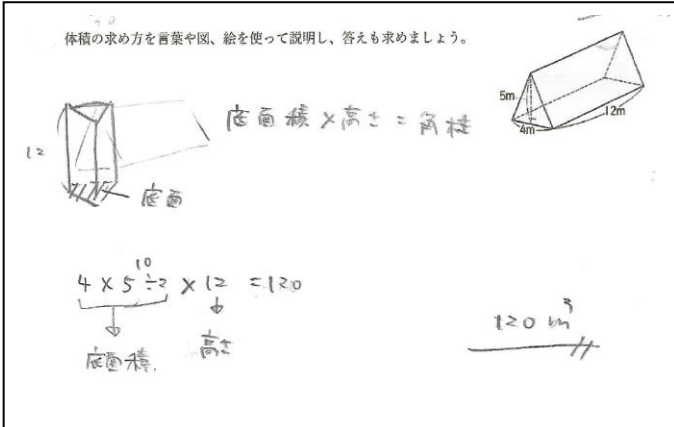 体積の求め方を言葉や図、絵を使って説明し、答えも求めましょう。
5m
4m
12m
底面積×高さ=角柱
12
底面
10
4×5÷2×12=120
底面積
高さ
120m³